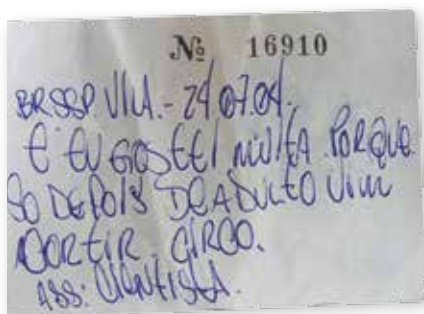 Nº 16910
BRSSP VILA. - 24.07.04.
E EU GOSTEI MUITA PORQUE
SO DEPOIS DE ADULTO VIM
CORTIR CIRCO.
ASS: